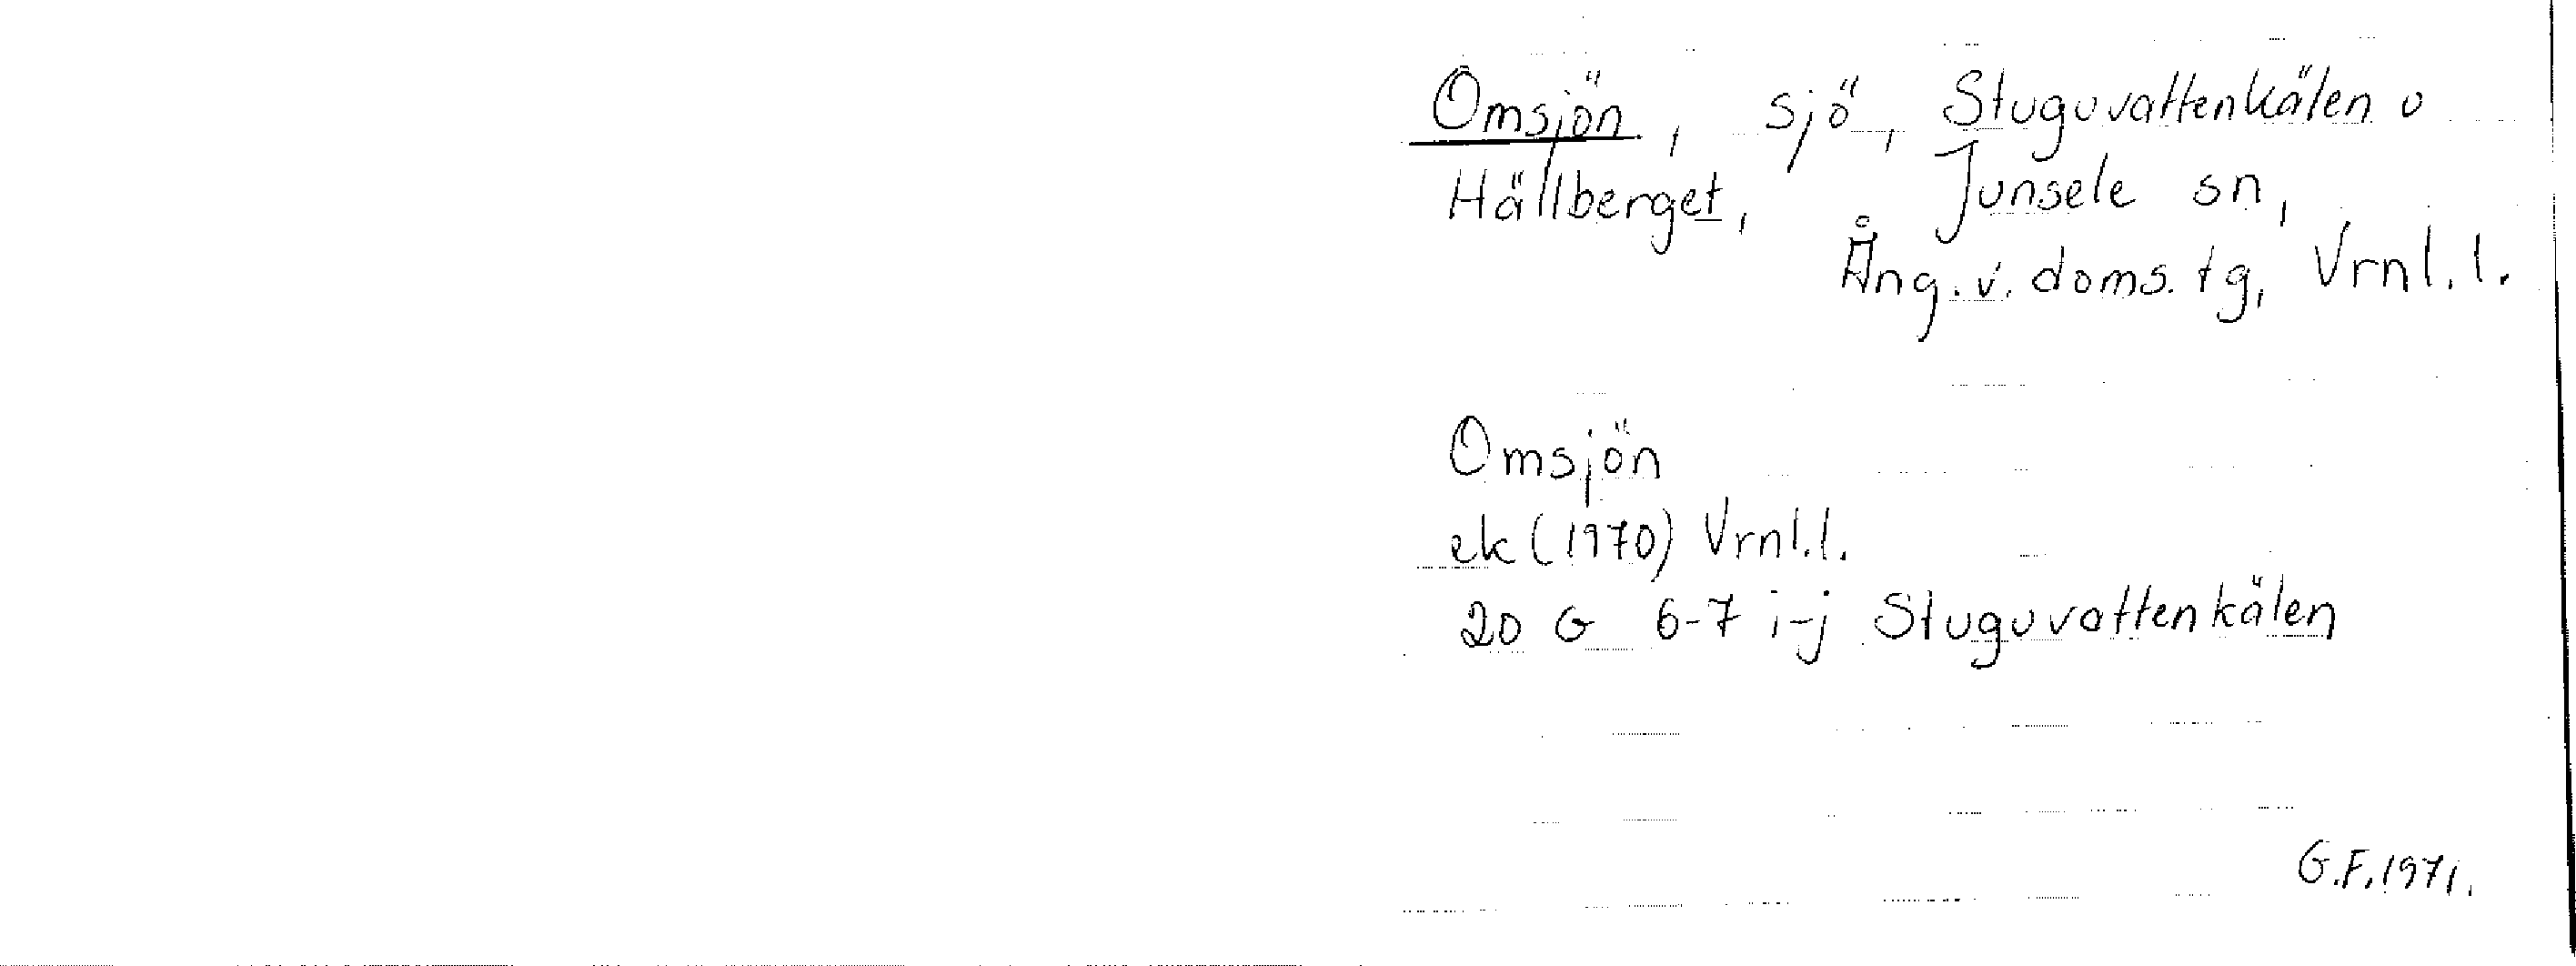 Omsjön, sjö, Stuguvattenkälen o
Hällberget, Junsele sn,
Ång. v. doms. tg, Vrnl. l.
Omsjön
ek (1970) Vrnl. l.
20 G 6-7 i-j Stuguvattenkälen
G.F. 1971.